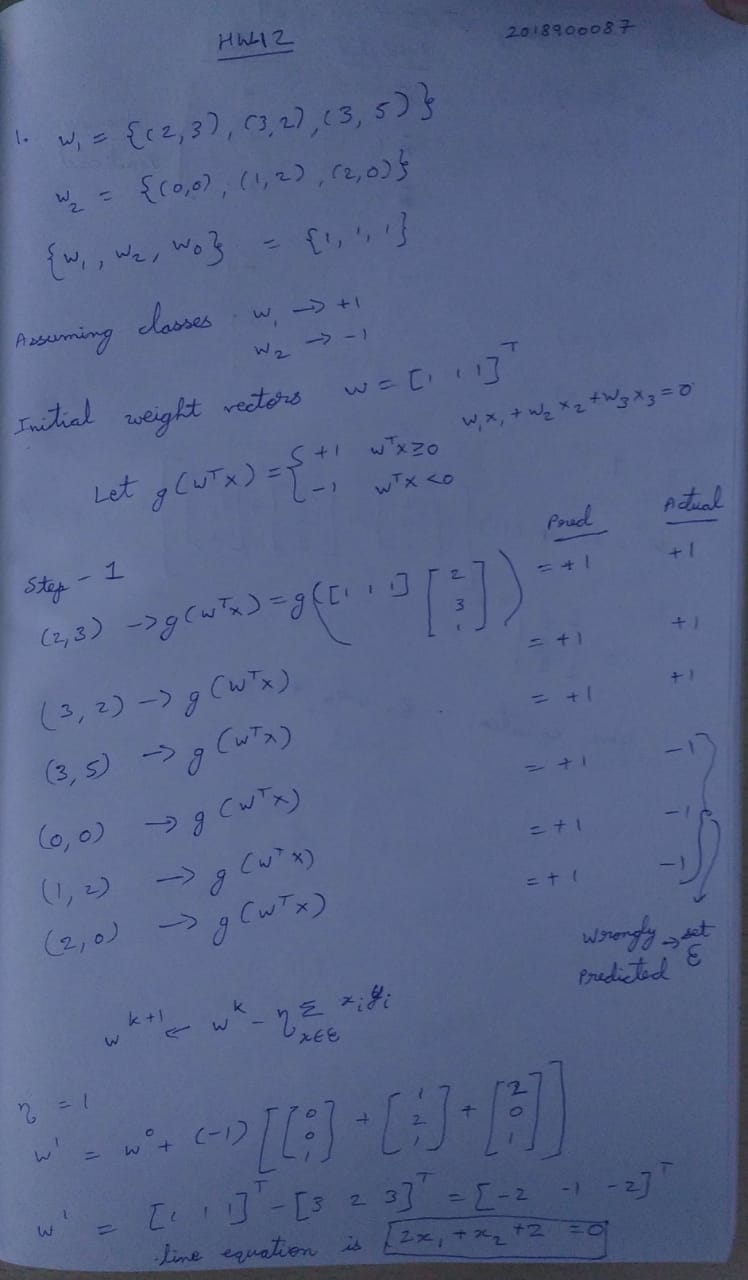 HW12 2018900087
1. w₁ = {(2,3), (3,2), (3,5)}
w₂ = {(0,0), (1,2), (2,0)}
{w₁, w₂, w₀} = {1, 1, 1}
Assuming classes w₁ → +1
w₂ → -1
Initial weight vectors w = [1 1 1]ᵀ
w₁x₁ + w₂x₂ + w₃x₃ = 0
Let g(wᵀx) = { +1 wᵀx ≥ 0
-1 wᵀx < 0
Pred Actual
Step - 1
(2,3) → g(wᵀx) = g([1 1 1] [2 3 1]) = +1 +1
(3,2) → g(wᵀx) = +1 +1
(3,5) → g(wᵀx) = +1 +1
(0,0) → g(wᵀx) = +1 -1
(1,2) → g(wᵀx) = +1 -1
(2,0) → g(wᵀx) = +1 -1
Wrongly → set
Predicted ε
wᵏ⁺¹ ← wᵏ - η Σ xᵢyᵢ
x∈ε
η = 1
w¹ = w⁰ + (-1) [[0 0 1] + [1 2 1] + [2 0 1]]
w¹ = [1 1 1]ᵀ - [3 2 3]ᵀ = [-2 -1 -2]ᵀ
line equation is 2x₁ + x₂ + 2 = 0